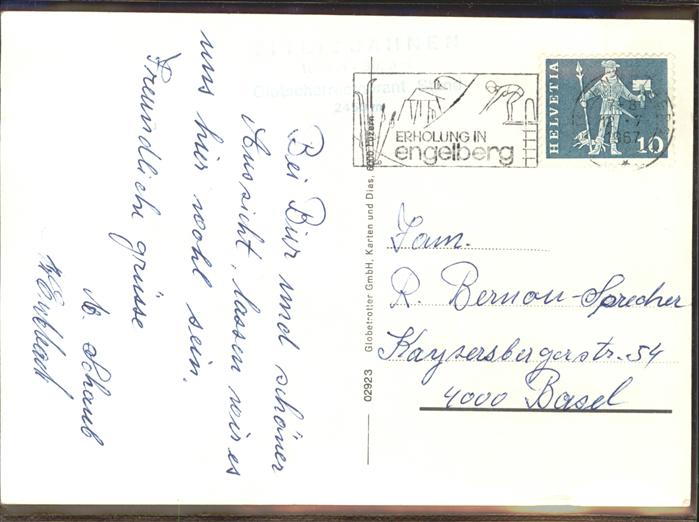 Bei Bier und schöner
Aussicht, lassen wir es
uns hier wohl sein.
Freundliche grüsse
M. Schaub
02923 Globetrotter GmbH, Karten und Dias, 6000 Luzern
ERHOLUNG IN
engelberg
HELVETIA
10
1967
Fam.
R. Bernou-Sprecher
Kaysersbergerstr. 54
4000 Basel